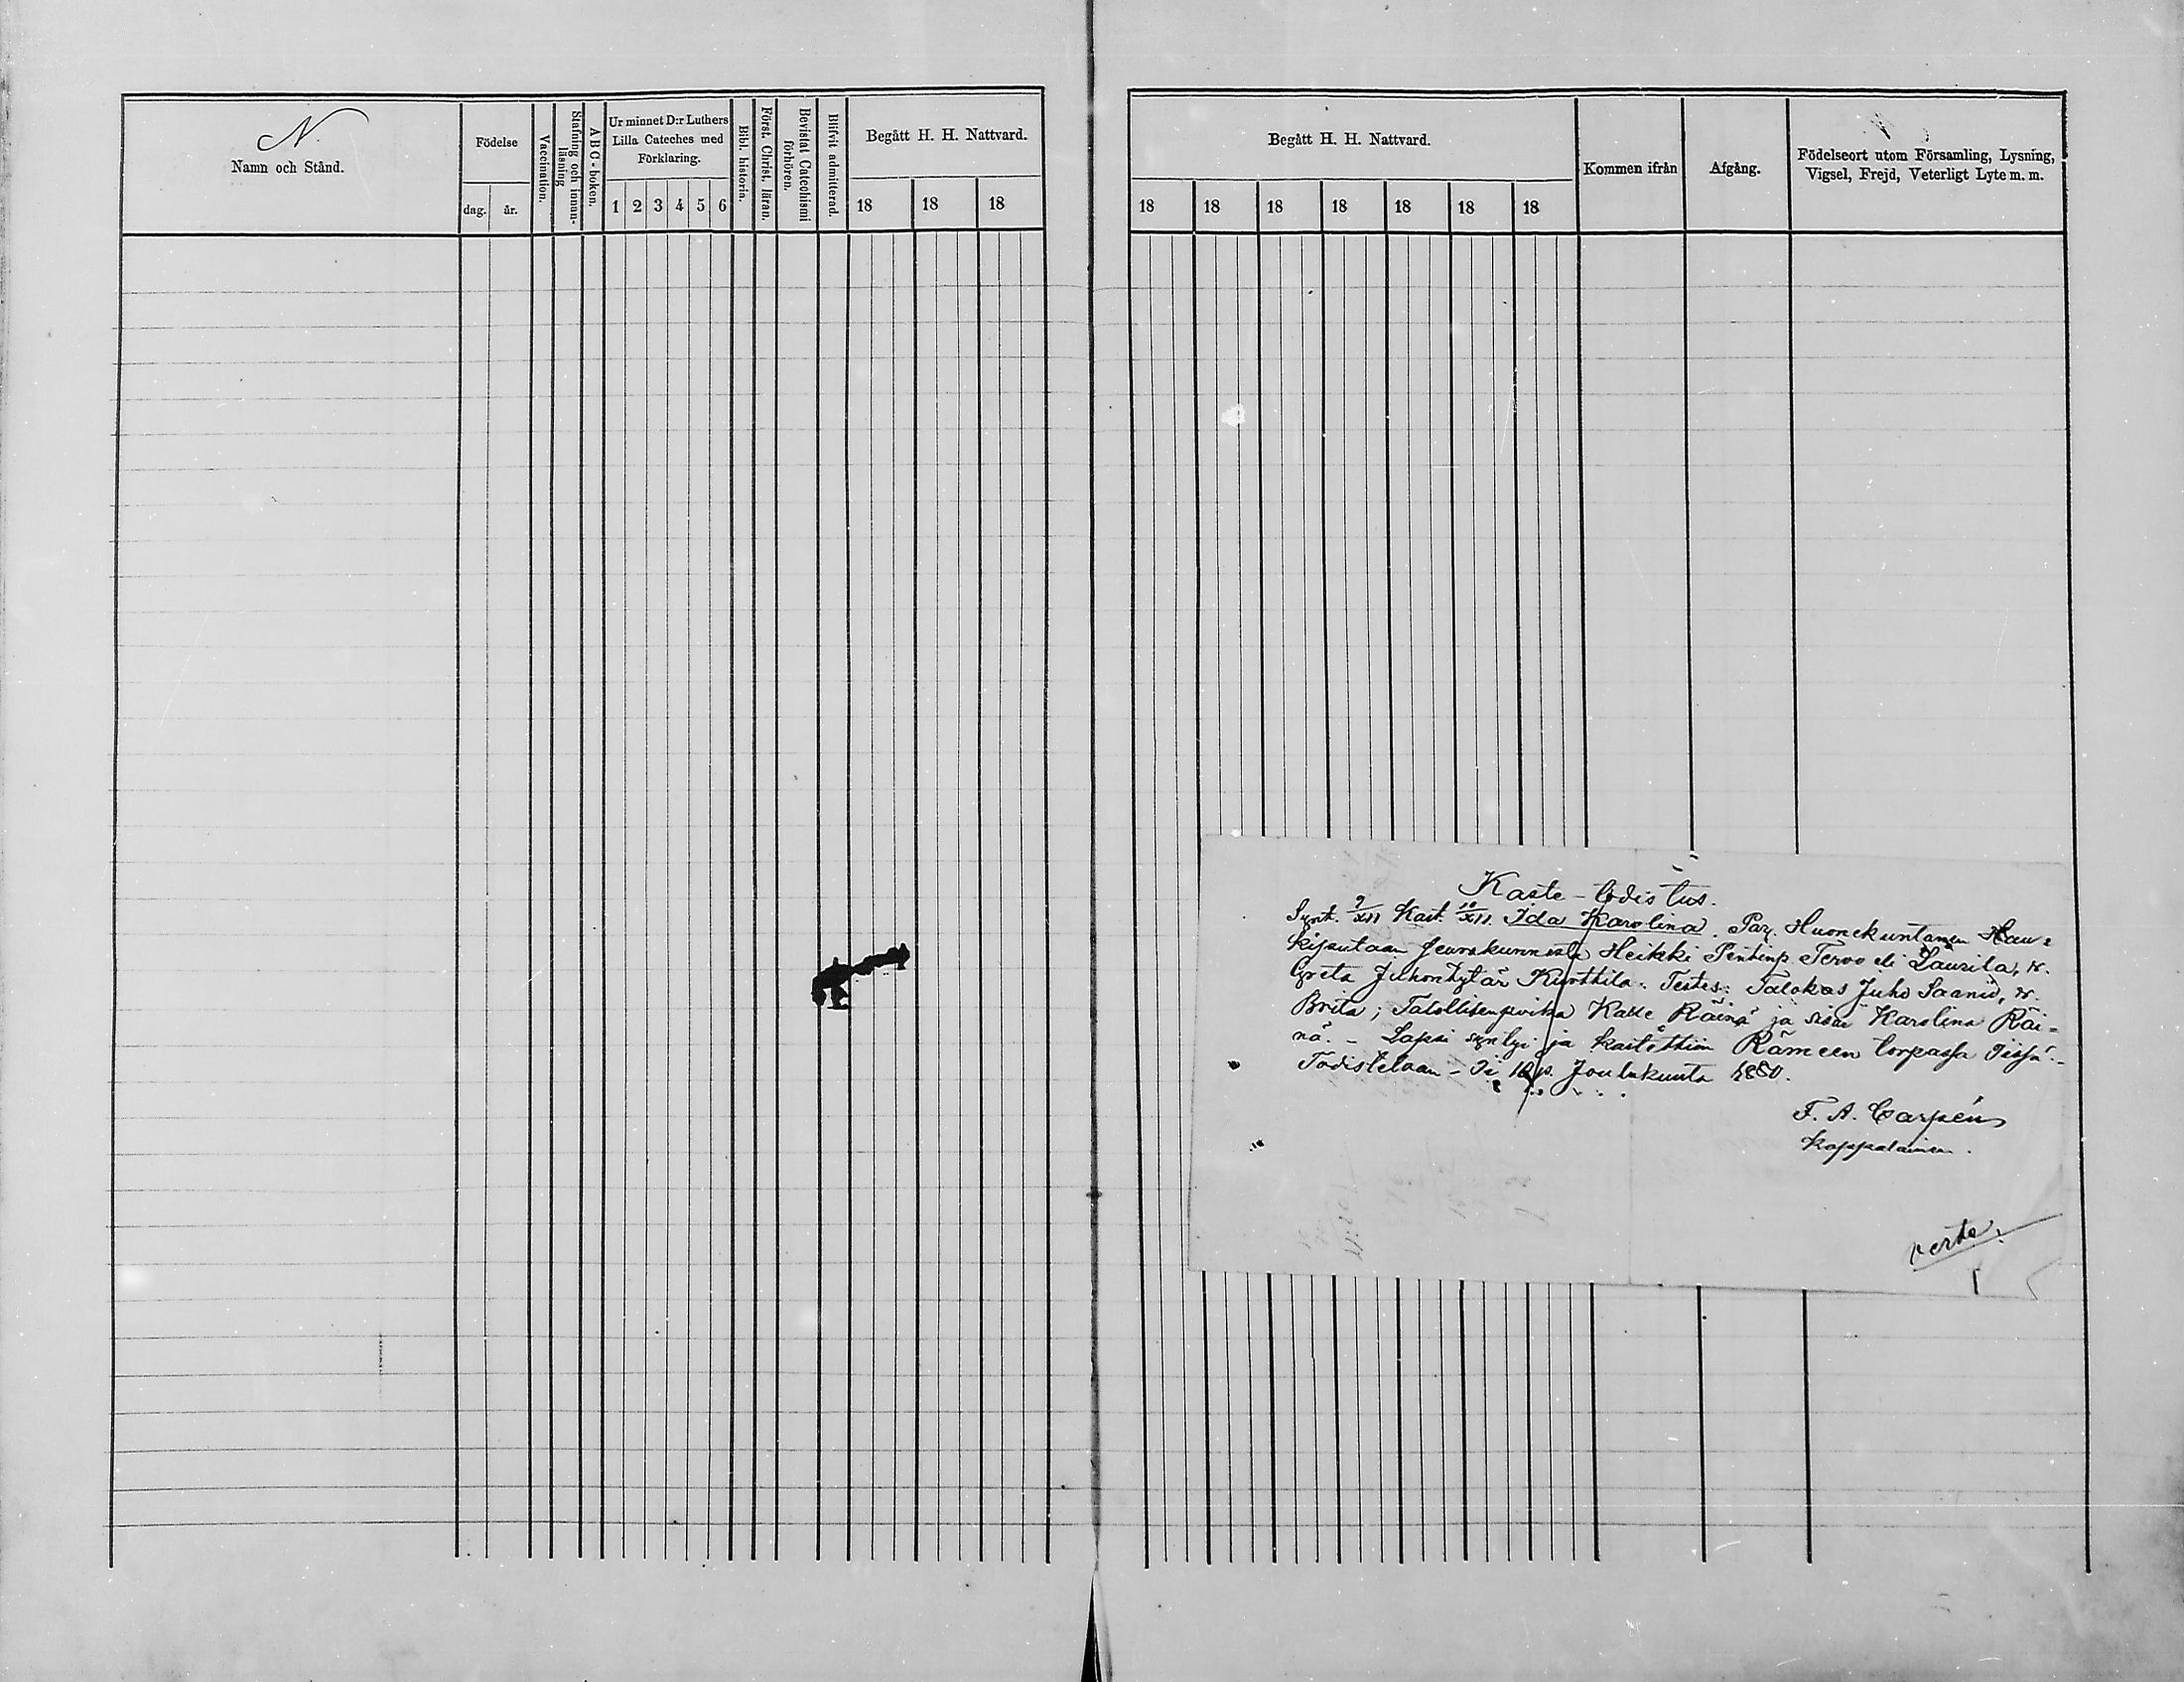 N.
Namn och Stånd.
Födelse
dag.
år.
Vaccination.
Stafning och innan-
läsning
ABC-boken.
Ur minnet D:r Luthers
Lilla Cateches med
Förklaring.
1 2 3 4 5 6
Bibl. historia.
Först. Christ. läran.
Bevistat Catechismi
förhören.
Blifvit admitterad.
Begått H. H. Nattvard.
18 18 18
Begått H. H. Nattvard.
18 18 18 18 18 18 18
Kommen ifrån
Afgång.
Födelseort utom Församling, Lysning,
Vigsel, Frejd, Veterligt Lyte m. m.
Kaste-todistus.
Synt. 9/XII Kast. 10/XII. Ida Karolina. Par. Huonekuntamen Hau=
kiputaan Seurakunnasta Heikki Pentinp. Tervo eli Laurila, v.
Greta Juhontytär Kurttila. Testes: Talokas Juho Saanio, v.
Brita; Talollisenpoika Kalle Räinä ja sisar Karolina Räi=
nä. - Lapsi syntyi ja kastettiin Rämeen torpassa Iissä. -
Todistetaan - Ii 10 p. Joulukuuta 1880.
F. A. Carpén
Kappalainen.
verte.